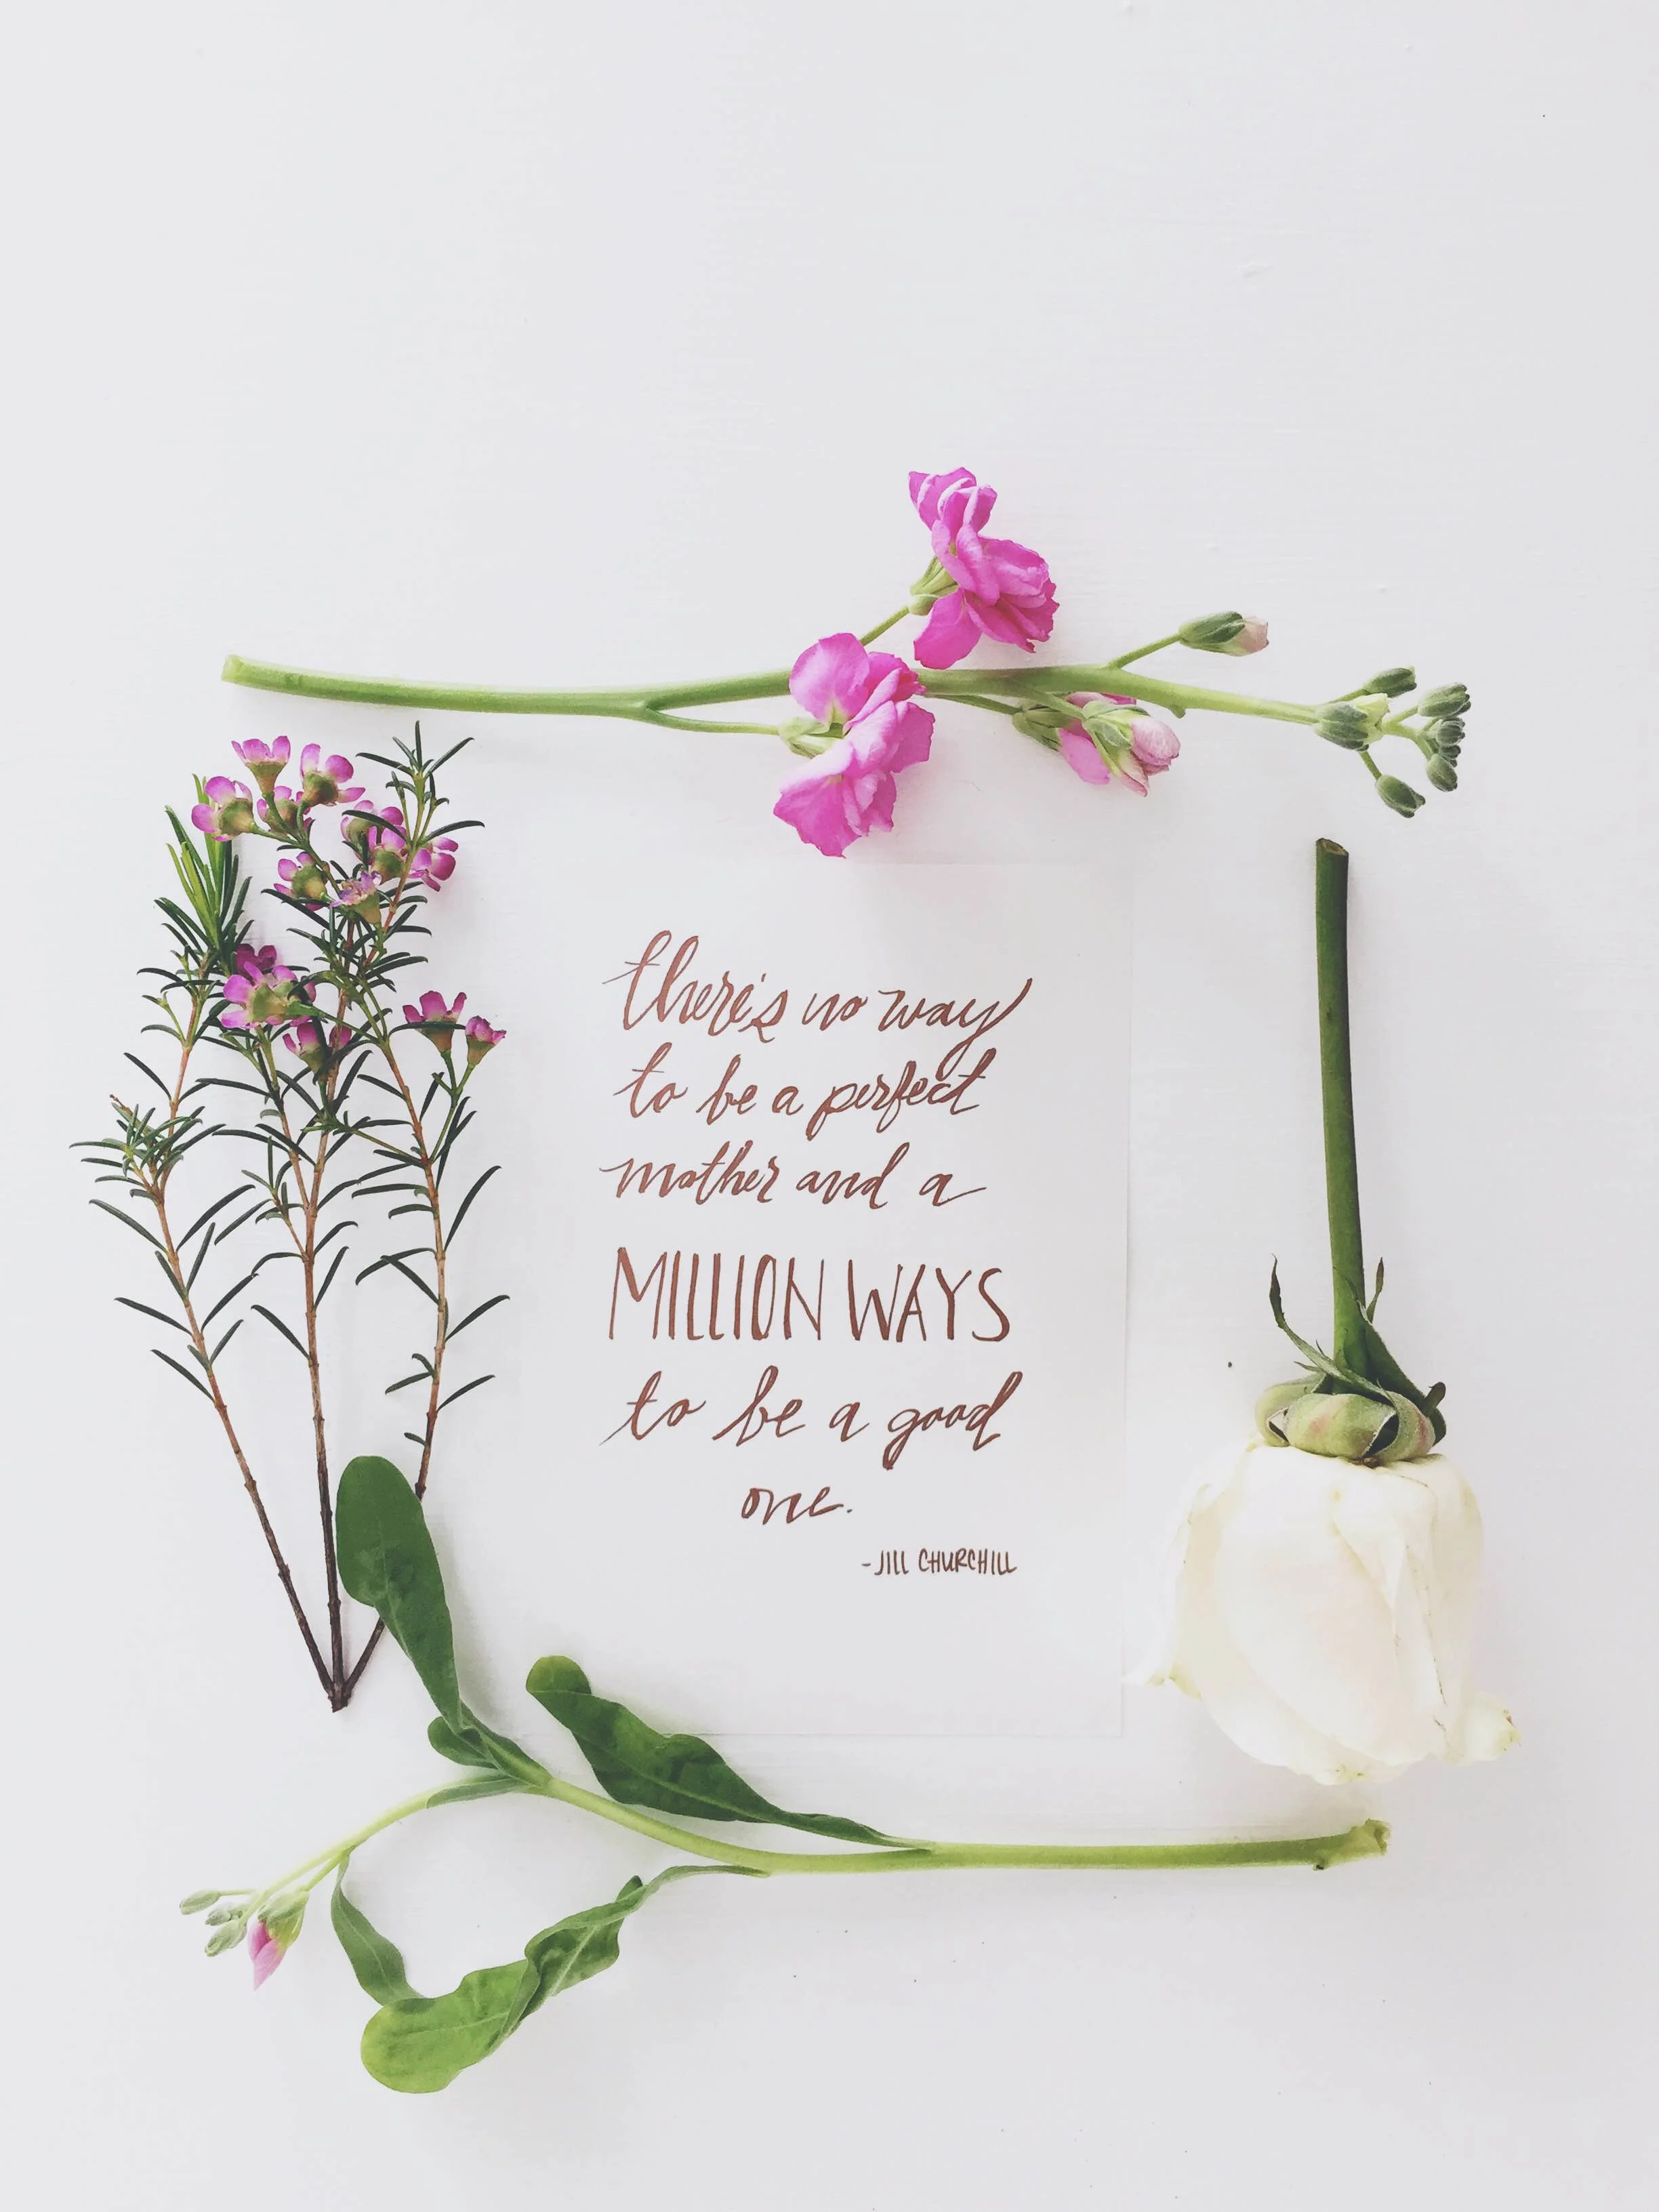 there's no way
to be a perfect
mother and a
MILLION WAYS
to be a good
one.
-JILL CHURCHILL